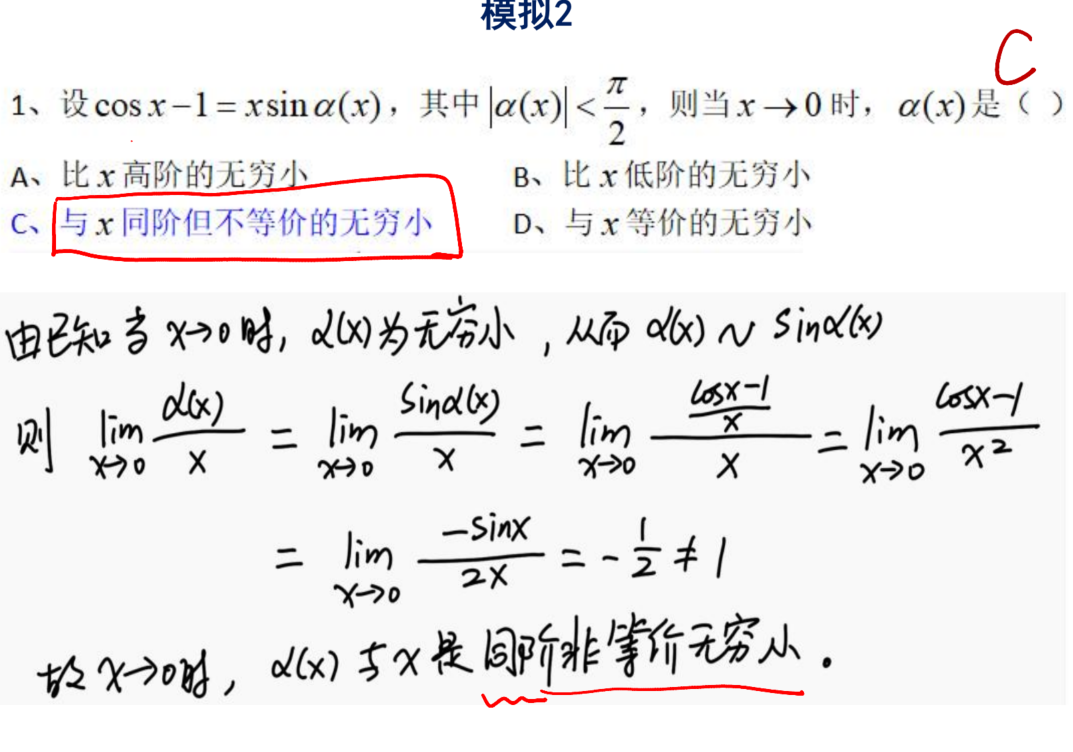 模拟2
C
1、设 cos x − 1 = x sin α(x)，其中 |α(x)| < π/2，则当 x → 0 时， α(x) 是（ ）
A、比 x 高阶的无穷小 B、比 x 低阶的无穷小
C、与 x 同阶但不等价的无穷小 D、与 x 等价的无穷小
由已知当 x→0 时, α(x) 为无穷小，从而 α(x) ~ sinα(x)
则 lim_{x→0} α(x)/x = lim_{x→0} sinα(x)/x = lim_{x→0} ((cosx−1)/x)/x = lim_{x→0} (cosx−1)/x²
= lim_{x→0} (−sinx)/(2x) = −1/2 ≠ 1
故 x→0时, α(x) 与 x 是同阶非等价无穷小。